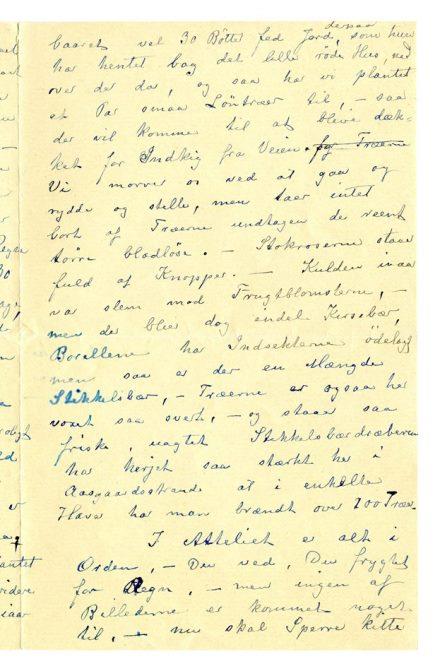 desaa
baaret vel 30 Bøtter fed Jord, som hun
har hentet bag det lille røde Hus, ned
over der da, og saa har vi plantet
et Par smaa Løntrær til, – saa
der vil komme til at bleve dæk-
ket for Indkig fra Veien. for Træerne
Vi morer os ved at gaa og
rydde og stelle, men taer intet
bort af Træerne undtagen de reent
tørre bladløse. – Stokroserne staar
fuld af Knopper. – Kulden
var slem mod Frugtblomsterne, –
men der blev dog endel Kirsebær,
Borellene har Indsekterne ødelagt
men saa er der en Mængde
Stikkelsbær, – Træerne er ogsaa her
voxet saa svert, – og staar saa
friske, uagtet Stikkelsbærdræberen
har herjet saa stærkt her i
Aasgaardsstrand at i enkelte
Haver har man brændt over 100 Trær.
I Atteliet er alt i
Orden, – Du ved, Du frygtet
for Regn, – men ingen af
Billederne er kommet noget
til, – nu skal Sperre kitte